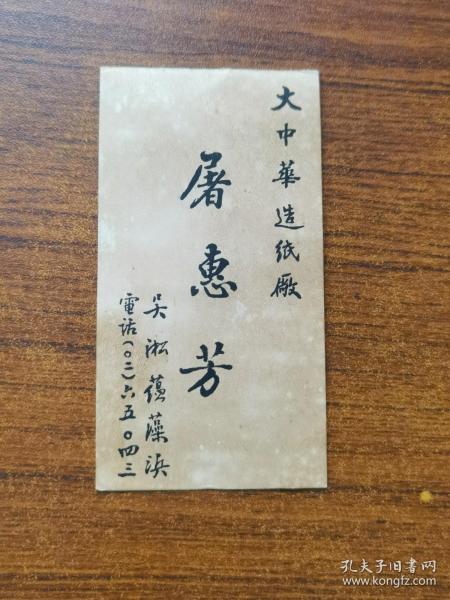 大中華造紙廠
屠惠芳
吴淞蕴藻浜
電话(〇二)六五〇四三
孔夫子旧书网
www.kongfz.com